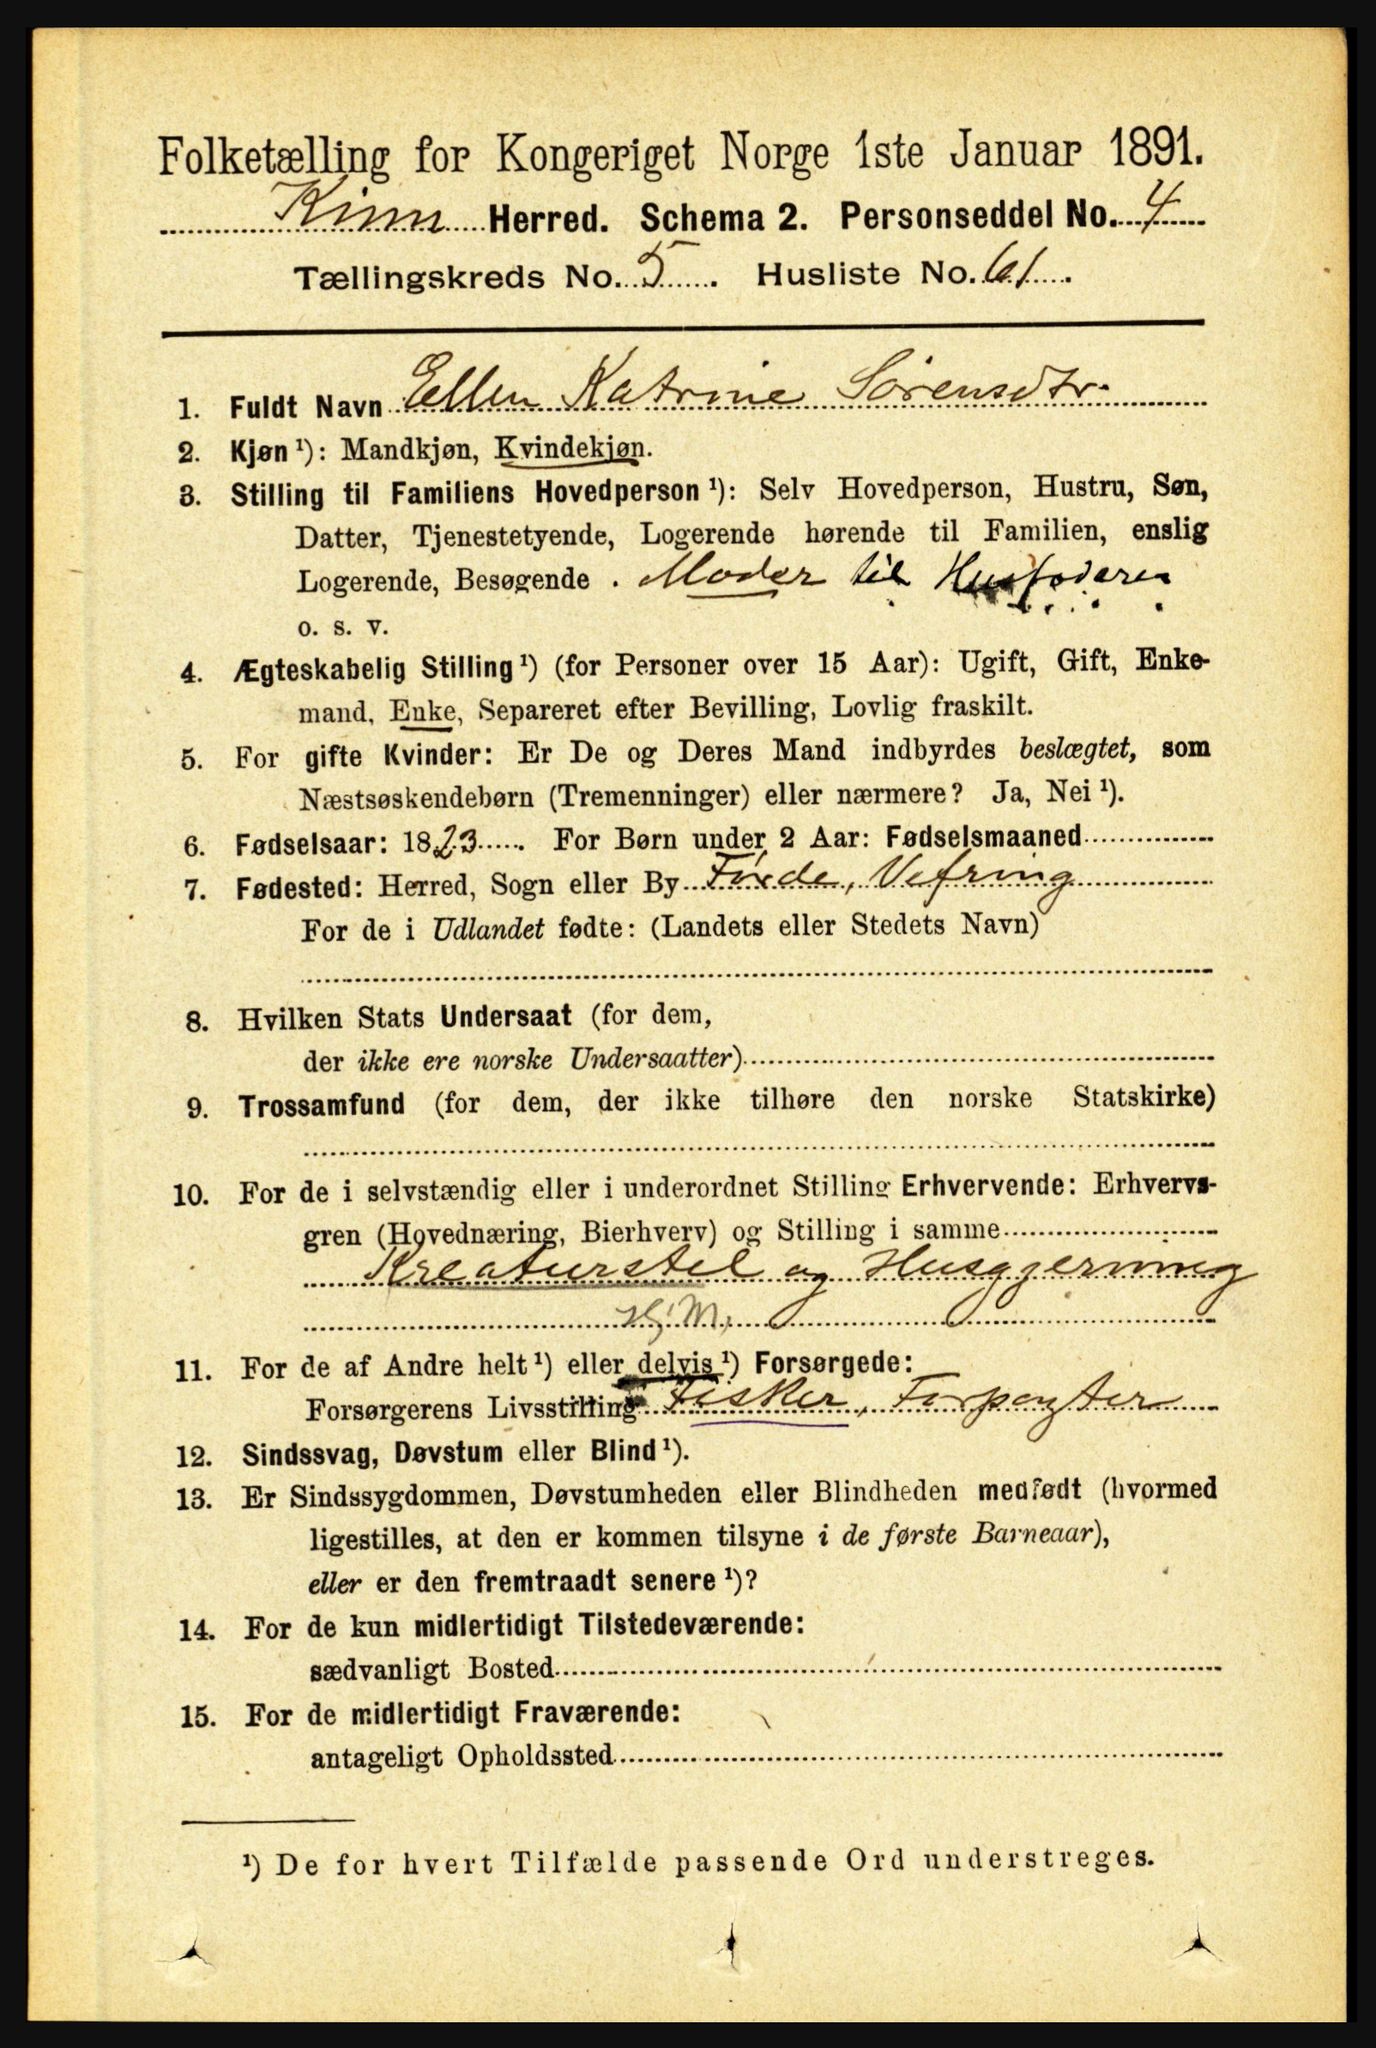 Folketælling for Kongeriget Norge 1ste Januar 1891.
Kinn Herred. Schema 2. Personseddel No. 4
Tællingskreds No. 5. Husliste No. 61.
1. Fuldt Navn Ellen Katrine Sörensdtr.
2. Kjøn ¹): Mandkjøn, Kvindekjøn.
3. Stilling til Familiens Hovedperson ¹): Selv Hovedperson, Hustru, Søn,
Datter, Tjenestetyende, Logerende hørende til Familien, enslig
Logerende, Besøgende . Moder til Husfaderen
o. s. v.
4. Ægteskabelig Stilling ¹) (for Personer over 15 Aar): Ugift, Gift, Enke-
mand, Enke, Separeret efter Bevilling, Lovlig fraskilt.
5. For gifte Kvinder: Er De og Deres Mand indbyrdes beslægtet, som
Næstsøskendebørn (Tremenninger) eller nærmere? Ja, Nei ¹).
6. Fødselsaar: 1823. For Børn under 2 Aar: Fødselsmaaned
7. Fødested: Herred, Sogn eller By Förde, Vefring
For de i Udlandet fødte: (Landets eller Stedets Navn)
8. Hvilken Stats Undersaat (for dem,
der ikke ere norske Undersaatter)
9. Trossamfund (for dem, der ikke tilhøre den norske Statskirke)
10. For de i selvstændig eller i underordnet Stilling Erhvervende: Erhvervs-
gren (Hovednæring, Bierhverv) og Stilling i samme
Kreaturstel og Husgjerning
Hj.M,
11. For de af Andre helt ¹) eller delvis ¹) Forsørgede:
Forsørgerens Livsstilling Fisker, Forpagter
12. Sindssvag, Døvstum eller Blind ¹).
13. Er Sindssygdommen, Døvstumheden eller Blindheden medfødt (hvormed
ligestilles, at den er kommen tilsyne i de første Barneaar),
eller er den fremtraadt senere ¹)?
14. For de kun midlertidigt Tilstedeværende:
sædvanligt Bosted
15. For de midlertidigt Fraværende:
antageligt Opholdssted
¹) De for hvert Tilfælde passende Ord understreges.